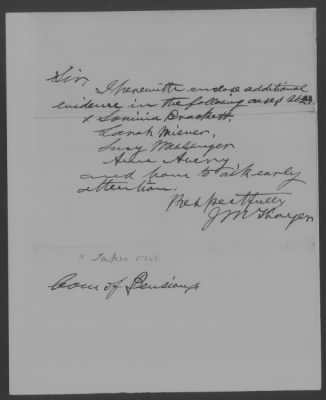 Sir,
I herewith enclose additional
evidence in the following cases
x Lovinia Brackett,
Sarah Misner,
Lucy Messenger
Anne Avery
and have to ask early
attention.
Respectfully
J M Thayer
x Taken out
Com of Pensions